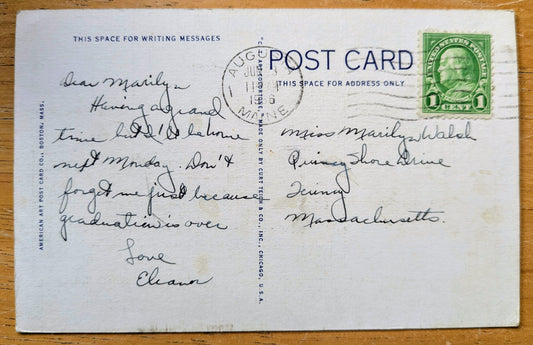 THIS SPACE FOR WRITING MESSAGES
POST CARD
THIS SPACE FOR ADDRESS ONLY
AUGUSTA
MAINE
UNITED STATES POSTAGE
1 CENT 1
Dear Marilyn
Having a grand
time but I'll be home
next Monday. Don't
forget me just because
graduation is over
Love
Eleanor
Miss Marilyn Walsh
Quincy Shore Drive
Massachusetts.
AMERICAN ART POST CARD CO., BOSTON, MASS.
MADE ONLY BY CURT TEICH & CO., INC., CHICAGO, U.S.A.